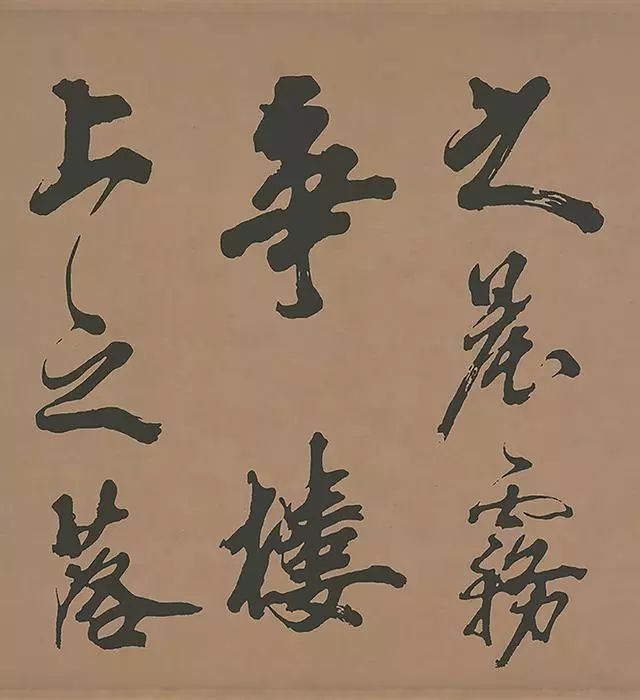 之晨霧
華樓
上之落